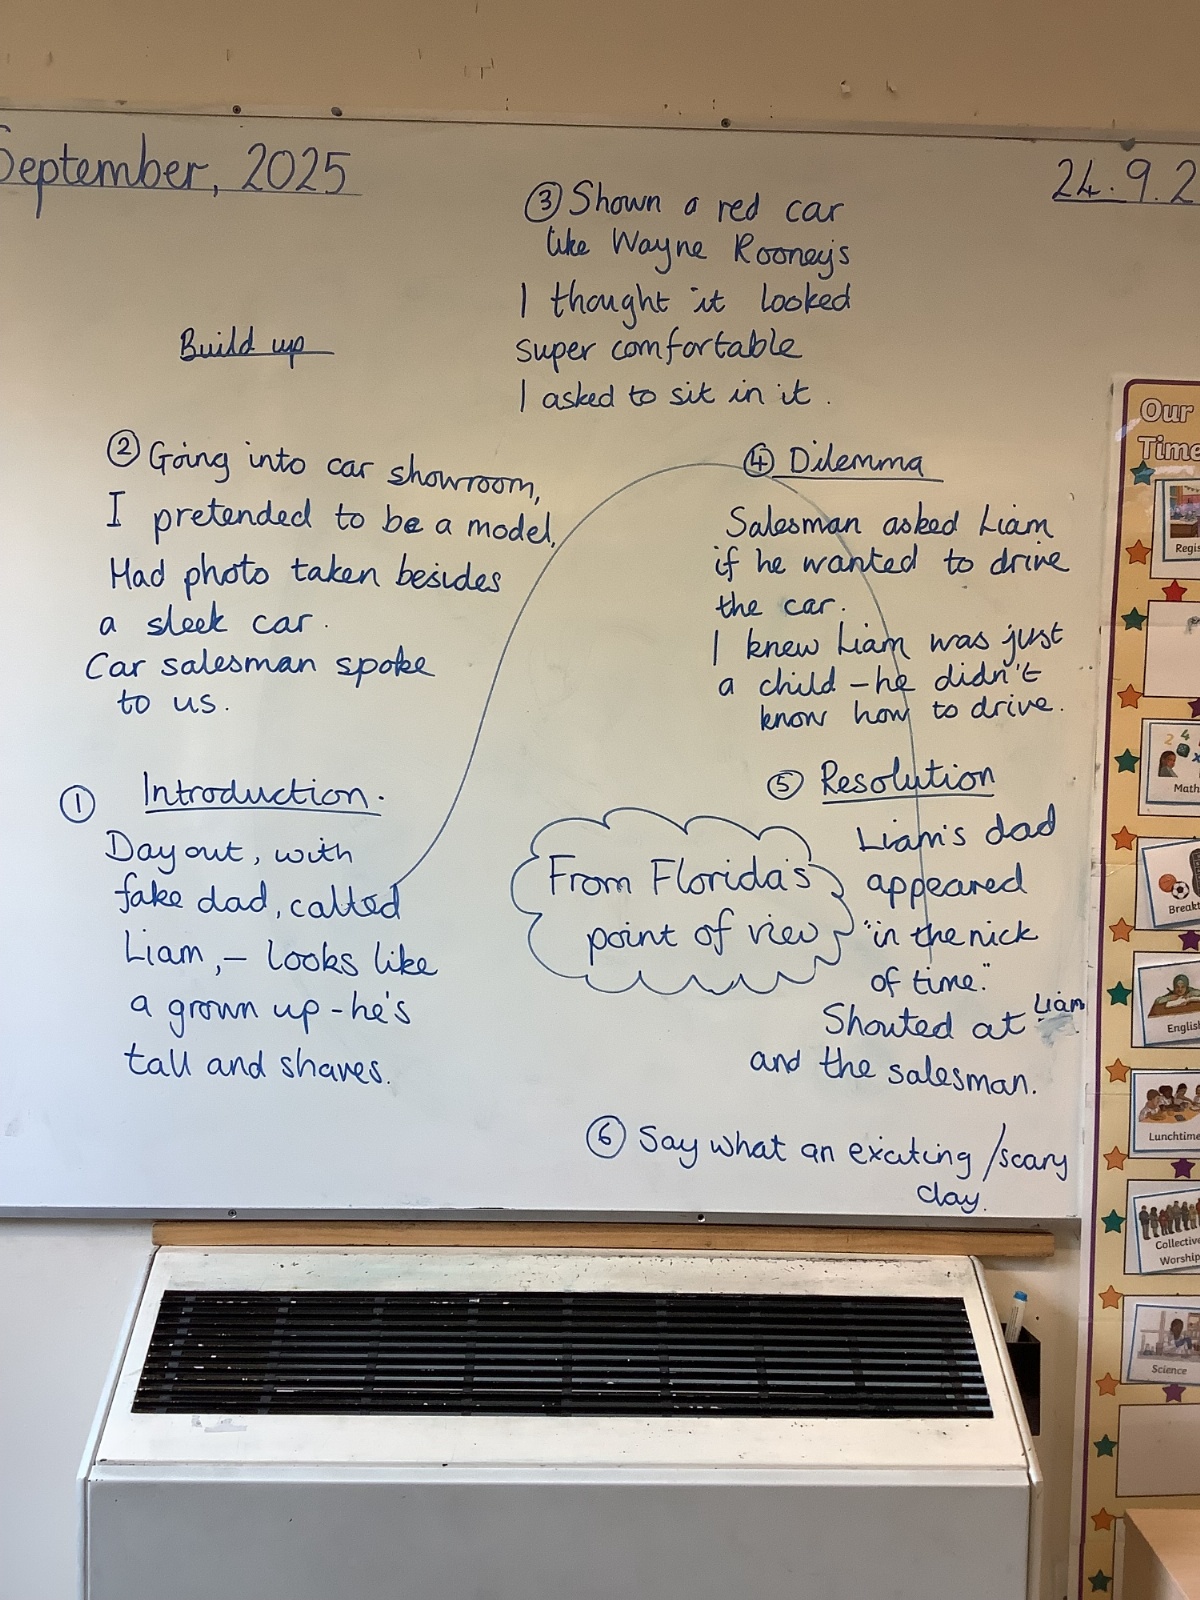 September, 2025
24.9.2
Build up
① Introduction.
Day out, with
fake dad, called
Liam, – looks like
a grown up - he's
tall and shaves.
② Going into car showroom,
I pretended to be a model.
Had photo taken besides
a sleek car.
Car salesman spoke
to us.
③ Shown a red car
like Wayne Rooney's
I thought it looked
super comfortable
I asked to sit in it.
④ Dilemma
Salesman asked Liam
if he wanted to drive
the car.
I knew Liam was just
a child – he didn't
know how to drive.
⑤ Resolution
Liam's dad
appeared
"in the nick
of time."
Shouted at Liam
and the salesman.
⑥ Say what an exciting /scary
day.
From Florida's
point of view
Our
Time
Regis
Math
Breakt
English
Lunchtime
Collective
Worship
Science